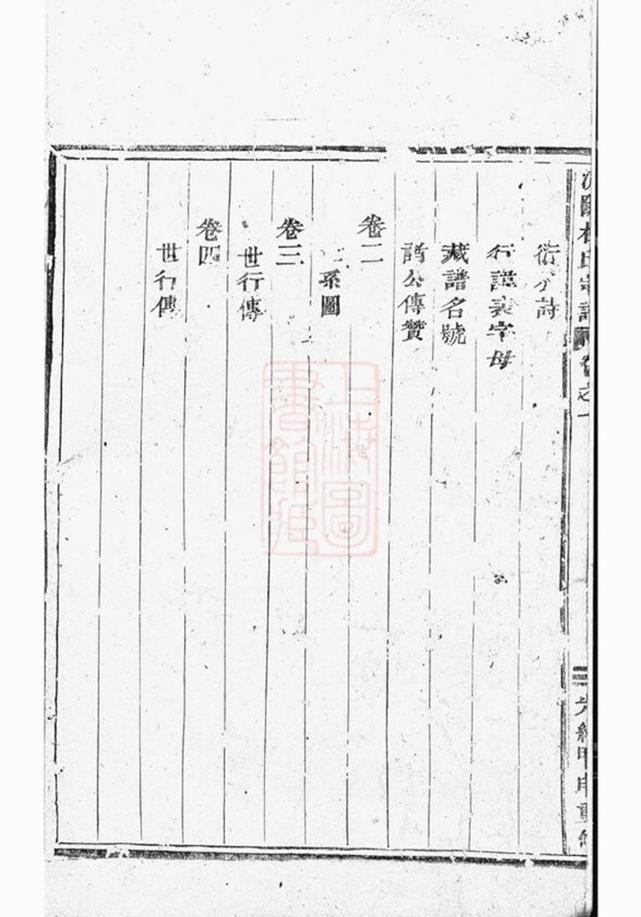 氏宗譜 卷之一
光緒甲申重修
詩
行諱表字母
藏譜名號
諸公傳贊
卷二
系圖
卷三
世行傳
卷四
世行傳
上海圖
書館藏